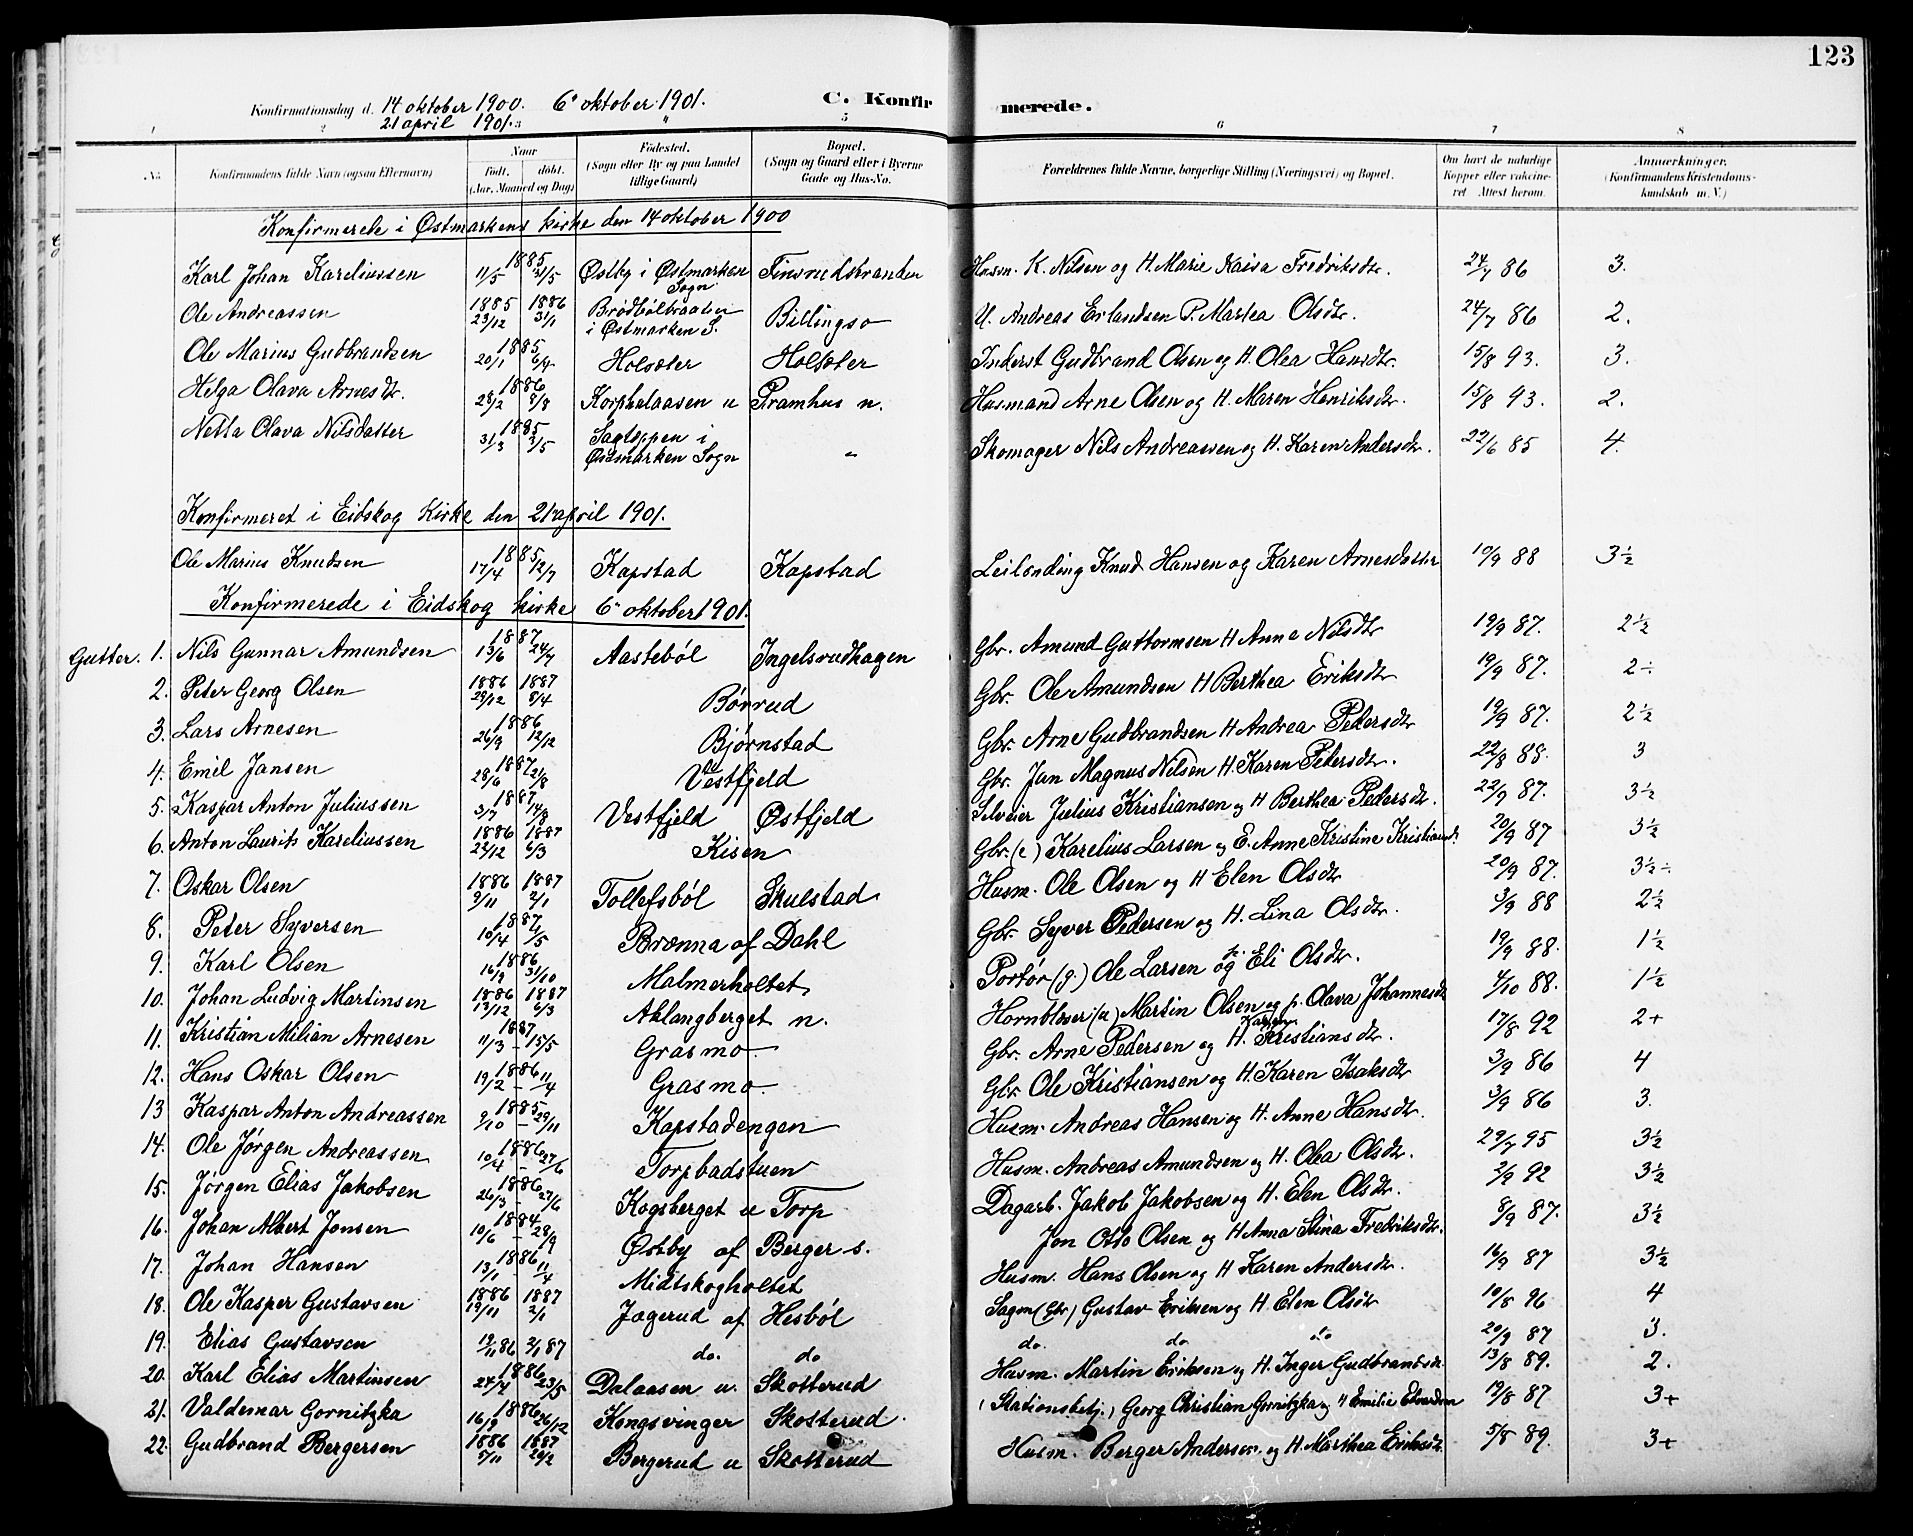 123
Konfirmationsdag d. 14 oktober 1900. 6' oktober 1901. C. Konfirmerede.
21 april 1901.
1 2 3 4 5 6 7 8
No. Konfirmandens fulde Navn (ogsaa Efternavn) Naar Født. døbt. (Aar, Maaned og Dag) Fødested. (Sogn eller By og paa Landet tillige Gaard) Bopæl. (Sogn og Gaard eller i Byerne Gade og Hus-No. Forældrenes fulde Navne, borgerlige Stilling (Næringsvei) og Bopæl. Om havt de naturlige Kopper eller vaccineret. Attest herom. Anmærkninger. (Konfirmandens Kristendomskundskab m. V.)
Konfirmerede i Østmarkens kirke den 14 oktober 1900
Karl Johan Kareliussen 1885 11/5 31/5 Østby i Østmarken Sogn Finsrudstranden Husm. K. Nilsen og H. Marie Kaisa Fredriksdtr. 24/7 86 3.
Ole Andreassen 1885 23/12 1886 3/1 Brødbølbraaten i Østmarken S. Billingso U. Andreas Erlandsen P. Martea Olsdtr. 24/7 86 2.
Ole Marius Gudbrandsen 1885 20/1 6/4 Holsæter Holsæter Inderst Gudbrand Olsen og H. Olea Hansdtr. 15/8 93. 3.
Helga Olava Arnesdtr. 1886 28/2 8/8 Korphalaasen u Pramhus n. Husmand Arne Olsen og H. Maren Henriksdtr. 15/8 93. 2.
Netta Olava Nilsdatter 1885 31/3 3/5 Sagtoppen i Østmarken Sogn " Skomager Nils Andreassen og H. Karen Andersdtr. 22/6 85 4.
Konfirmeret i Eidskog Kirke den 21 april 1901.
Ole Marius Knudsen 1885 17/4 12/7 Kapstad Kapstad Leilending Knud Hansen og Karen Arnesdatter 10/9 88 3½
Konfirmerede i Eidskog kirke 6' oktober 1901.
Gutter. 1. Nils Gunnar Amundsen 1887 13/6 24/7 Aastebøl Ingelsrudhagen Gbr. Amund Guttormsen H Anne Nilsdtr 19/9 87. 2½
2. Peter Georg Olsen 1886 29/12 1887 8/4 Børrud Gbr. Ole Amundsen H Berthea Eriksdtr 19/9 87. 2÷
3. Lars Arnesen 1886 26/9 12/12 Bjørnstad Gbr. Arne Gudbrandsen H Andrea Pedersdtr 19/9 87. 2½
4. Emil Jansen 1887 28/6 2/8 Vestfjeld Gbr. Jan Magnus Nilsen H. Karen Pedersdtr. 22/8 88. 3
5. Kaspar Anton Juliussen 1887 3/7 14/8 Vestfjeld Østfjeld Selveier Julius Kristiansen og H Berthea Pedersdtr. 22/9 87. 3½
6. Anton Laurits Kareliussen 1886 22/12 1887 6/3 Kisen Gbr. (e) Karelius Larsen og E. Anne Kristine Kristiansd. 20/9 87 3½
7. Oskar Olsen 1886 9/11 1887 2/1 Tollefsbøl Skulstad Husm. Ole Olsen og H Elen Olsdtr 20/9 87. 3½÷
8. Peter Syversen 1887 10/4 1/5 Brænna af Dahl Gbr. Syver Pedersen og H. Lina Olsdtr. 3/9 88 2½
9. Karl Olsen 1886 16/9 31/10 Malmerholtet Portør (g.) Ole Larsen og Eli Olsdtr. 19/9 88. 1½
10. Johan Ludvig Martinsen 1886 13/12 1887 6/3 Aklangberget n. Hornblæser (u) Martin Olsen og p. Olava Johannesdtr 4/10 88. 1½
11. Kristian Milian Arnesen 1887 11/3 - 15/5 Grasmo Gbr. Arne Pedersen og H. Karen Kristiansdtr. 17/8 92 2+
12. Hans Oskar Olsen 1886 19/2 - 11/4 Grasmo Gbr. Ole Kristiansen og H. Karen Isaksdtr 3/9 86 4
13 Kaspar Anton Andreassen 1885 9/10 - 29/11 Kapstadengen Husm. Andreas Hansen og H. Anne Hansdtr. 3/9 86 3.
14. Ole Jørgen Andreassen 1886 10/4 - 27/6 Torpbadstuen Husm. Andreas Amundsen og H. Olea Olsdtr. 29/7 95 3½
15. Jørgen Elias Jakobsen 1886 26/3 - 27/6 Kogsberget u Torp Dagarb. Jakob Jakobsen og H. Elen Olsdtr. 2/9 92 3½
16. Johan Albert Jonsen 1884 10/6 - 28/9 Østby af Berger s. Jon Otto Olsen og H Anna Stina Fredriksdtr. 8/9 87. 3½
17. Johan Hansen 1886 13/1 - 11/4 Midtskogholtet Husm. Hans Olsen og H Karen Andersdtr. 16/9 87 3½
18. Ole Kasper Gustavsen 1886 19/11 1887 2/1 Jagerud af Hesbøl Sagm (Gbr) Gustav Eriksen og H. Elen Olsdtr 10/8 96 4
19. Elias Gustavsen 19/11 86 2/1 87 do. do do. do. do 20/9 87 3.
20. Karl Elias Martinsen 1886 24/4 23/5 Dalaasen u. Skotterud Husm. Martin Eriksen og H. Inger Gudbrandsd. 13/8 89. 2.
21. Valdemar Gornitzka 1886 16/9 26/12 Kongsvinger Skotterud. (Stationsbetj.) Georg Christian Gornitzka og H Emilie 19/8 87 3+
22. Gudbrand Bergersen 1886 5/11 1887 20/2 Bergerud u Skotterud Husm. Berger Andersen og H. Marthea Eriksdtr 5/8 89. 3+